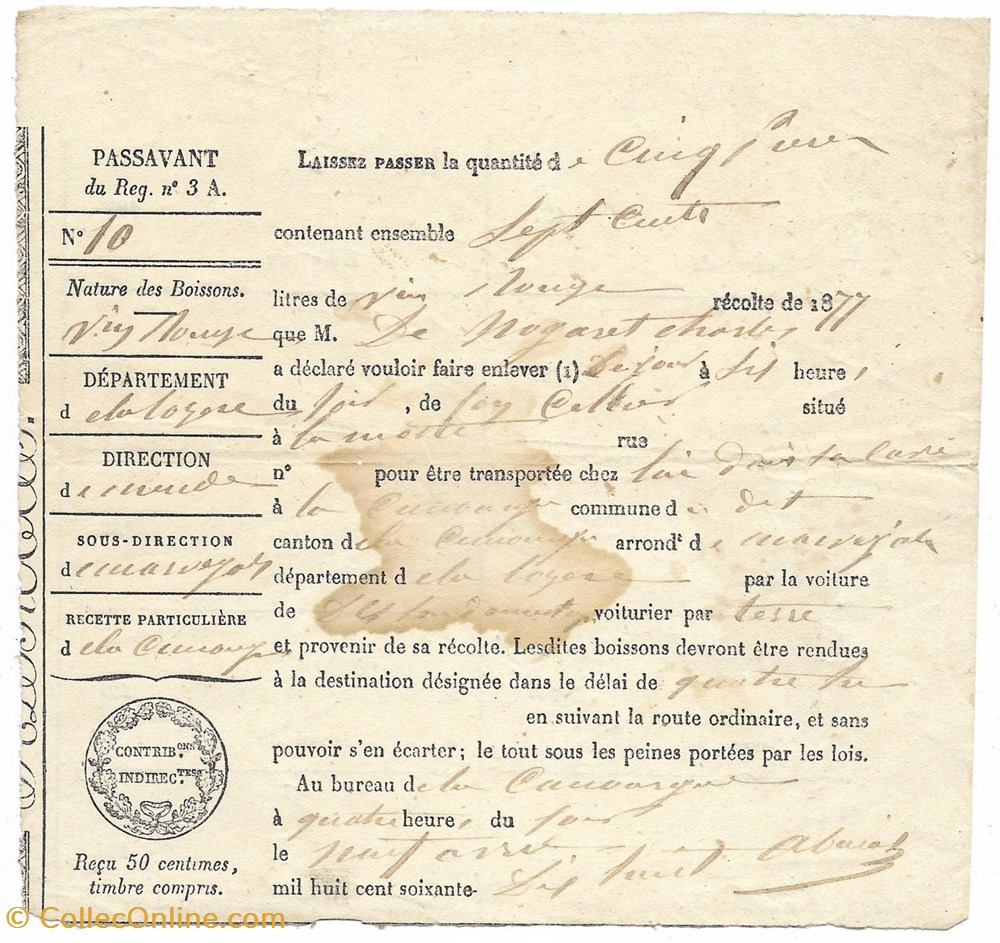 PASSAVANT
du Reg. n° 3 A.
N° 10
Nature des Boissons.
vin Rouge
DÉPARTEMENT
d ela lozere
DIRECTION
d e mende
SOUS-DIRECTION
d e marvejols
RECETTE PARTICULIÈRE
d ela Canourgue
CONTRIB.ONS
INDIREC.TES
Reçu 50 centimes,
timbre compris.
LAISSEZ PASSER la quantité d e Cinq
contenant ensemble Sept Cents
litres de vin Rouge récolte de 1877
que M. De Nogaret charles
a déclaré vouloir faire enlever (1) Ce jour à six heure,
du soir, de son Cellier situé
à la motte rue
n° pour être transportée chez lui dans sa Cave
à la Canourgue commune d e dit
canton d ela Canourgue arrond.t d e marvejols
département d ela lozere par la voiture
de voiturier par terre
et provenir de sa récolte. Lesdites boissons devront être rendues
à la destination désignée dans le délai de quatre
en suivant la route ordinaire, et sans
pouvoir s'en écarter; le tout sous les peines portées par les lois.
Au bureau d ela Canourgue
à quatre heure, du soir
le
mil huit cent soixante- Dix huit
© CollecOnline.com